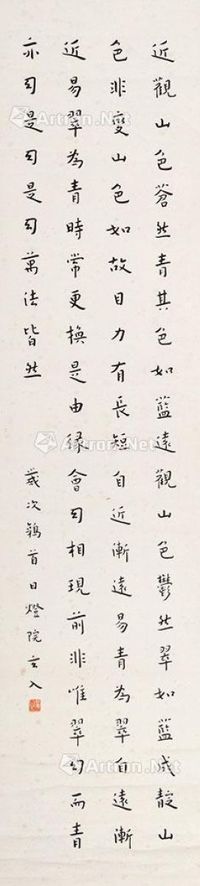 近觀山色蒼然青其色如藍遠觀山色鬱然翠如藍成靛山
色非變山色如故目力有長短自近漸遠易青為翠自遠漸
近易翠為青時常更換是由緣會幻相現前非唯翠幻而青
亦幻是幻是幻萬法皆然
歲次鶉首日燈院玄入
Artron.Net